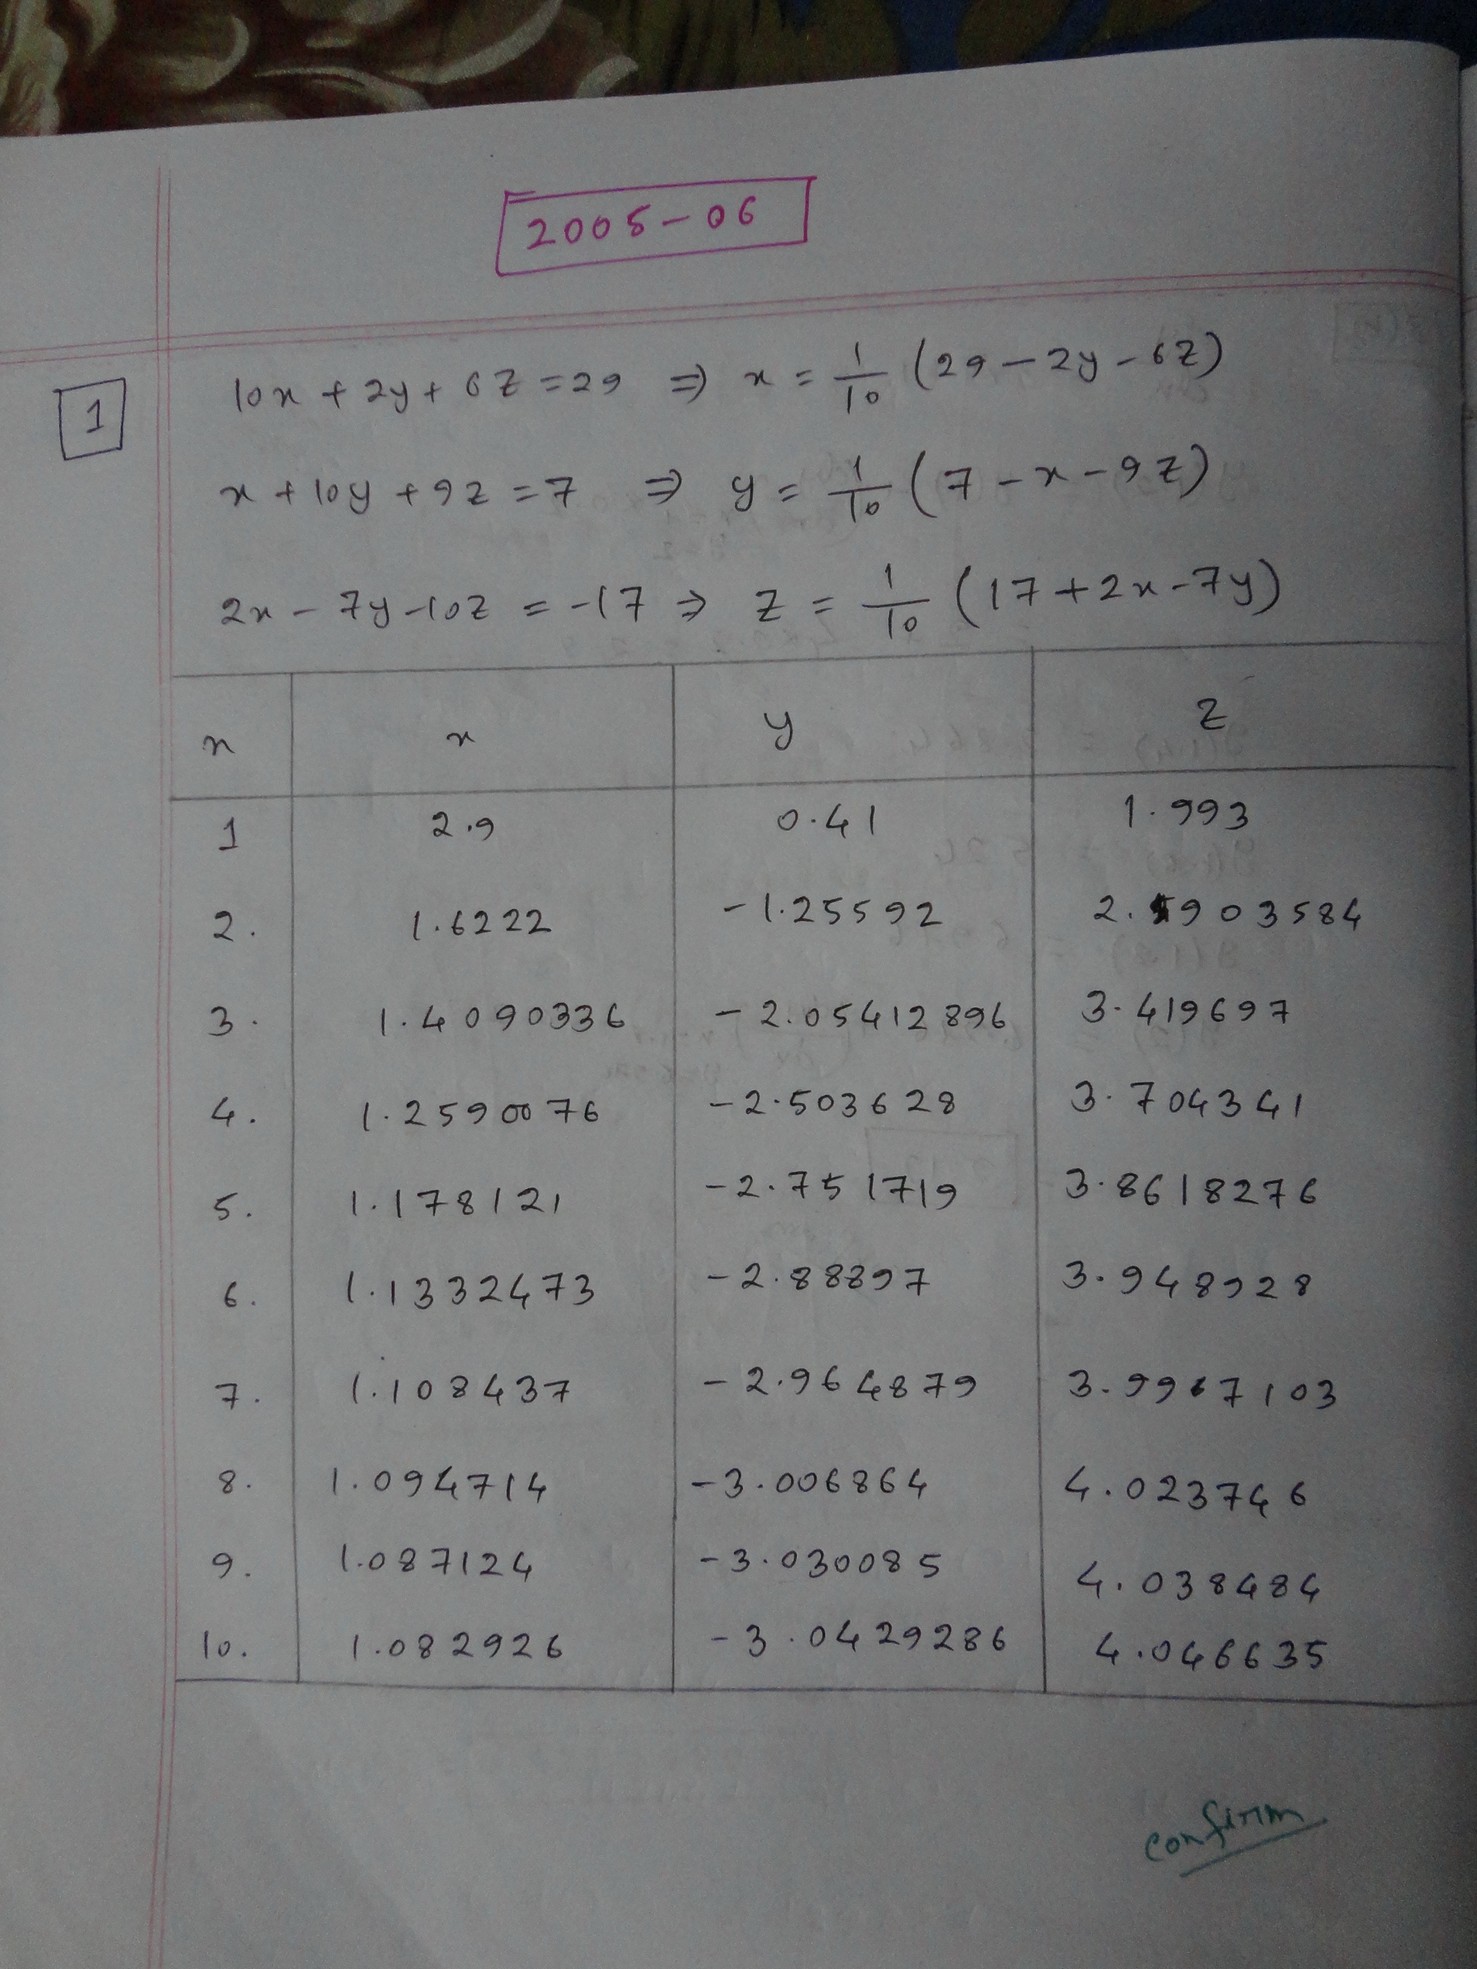 2005-06
1
10x + 2y + 6z = 29 ⇒ x = 1/10 (29 - 2y - 6z)
x + 10y + 9z = 7 ⇒ y = 1/10 (7 - x - 9z)
2x - 7y - 10z = -17 ⇒ z = 1/10 (17 + 2x - 7y)
n x y z
1 2.9 0.41 1.993
2. 1.6222 -1.25592 2.9903584
3. 1.4090336 -2.05412896 3.419697
4. 1.2590076 -2.503628 3.704341
5. 1.178121 -2.751719 3.8618276
6. 1.1332473 -2.88897 3.948928
7. 1.108437 -2.964879 3.9967103
8. 1.094714 -3.006864 4.023746
9. 1.087124 -3.030085 4.038484
10. 1.082926 -3.0429286 4.046635
confirm